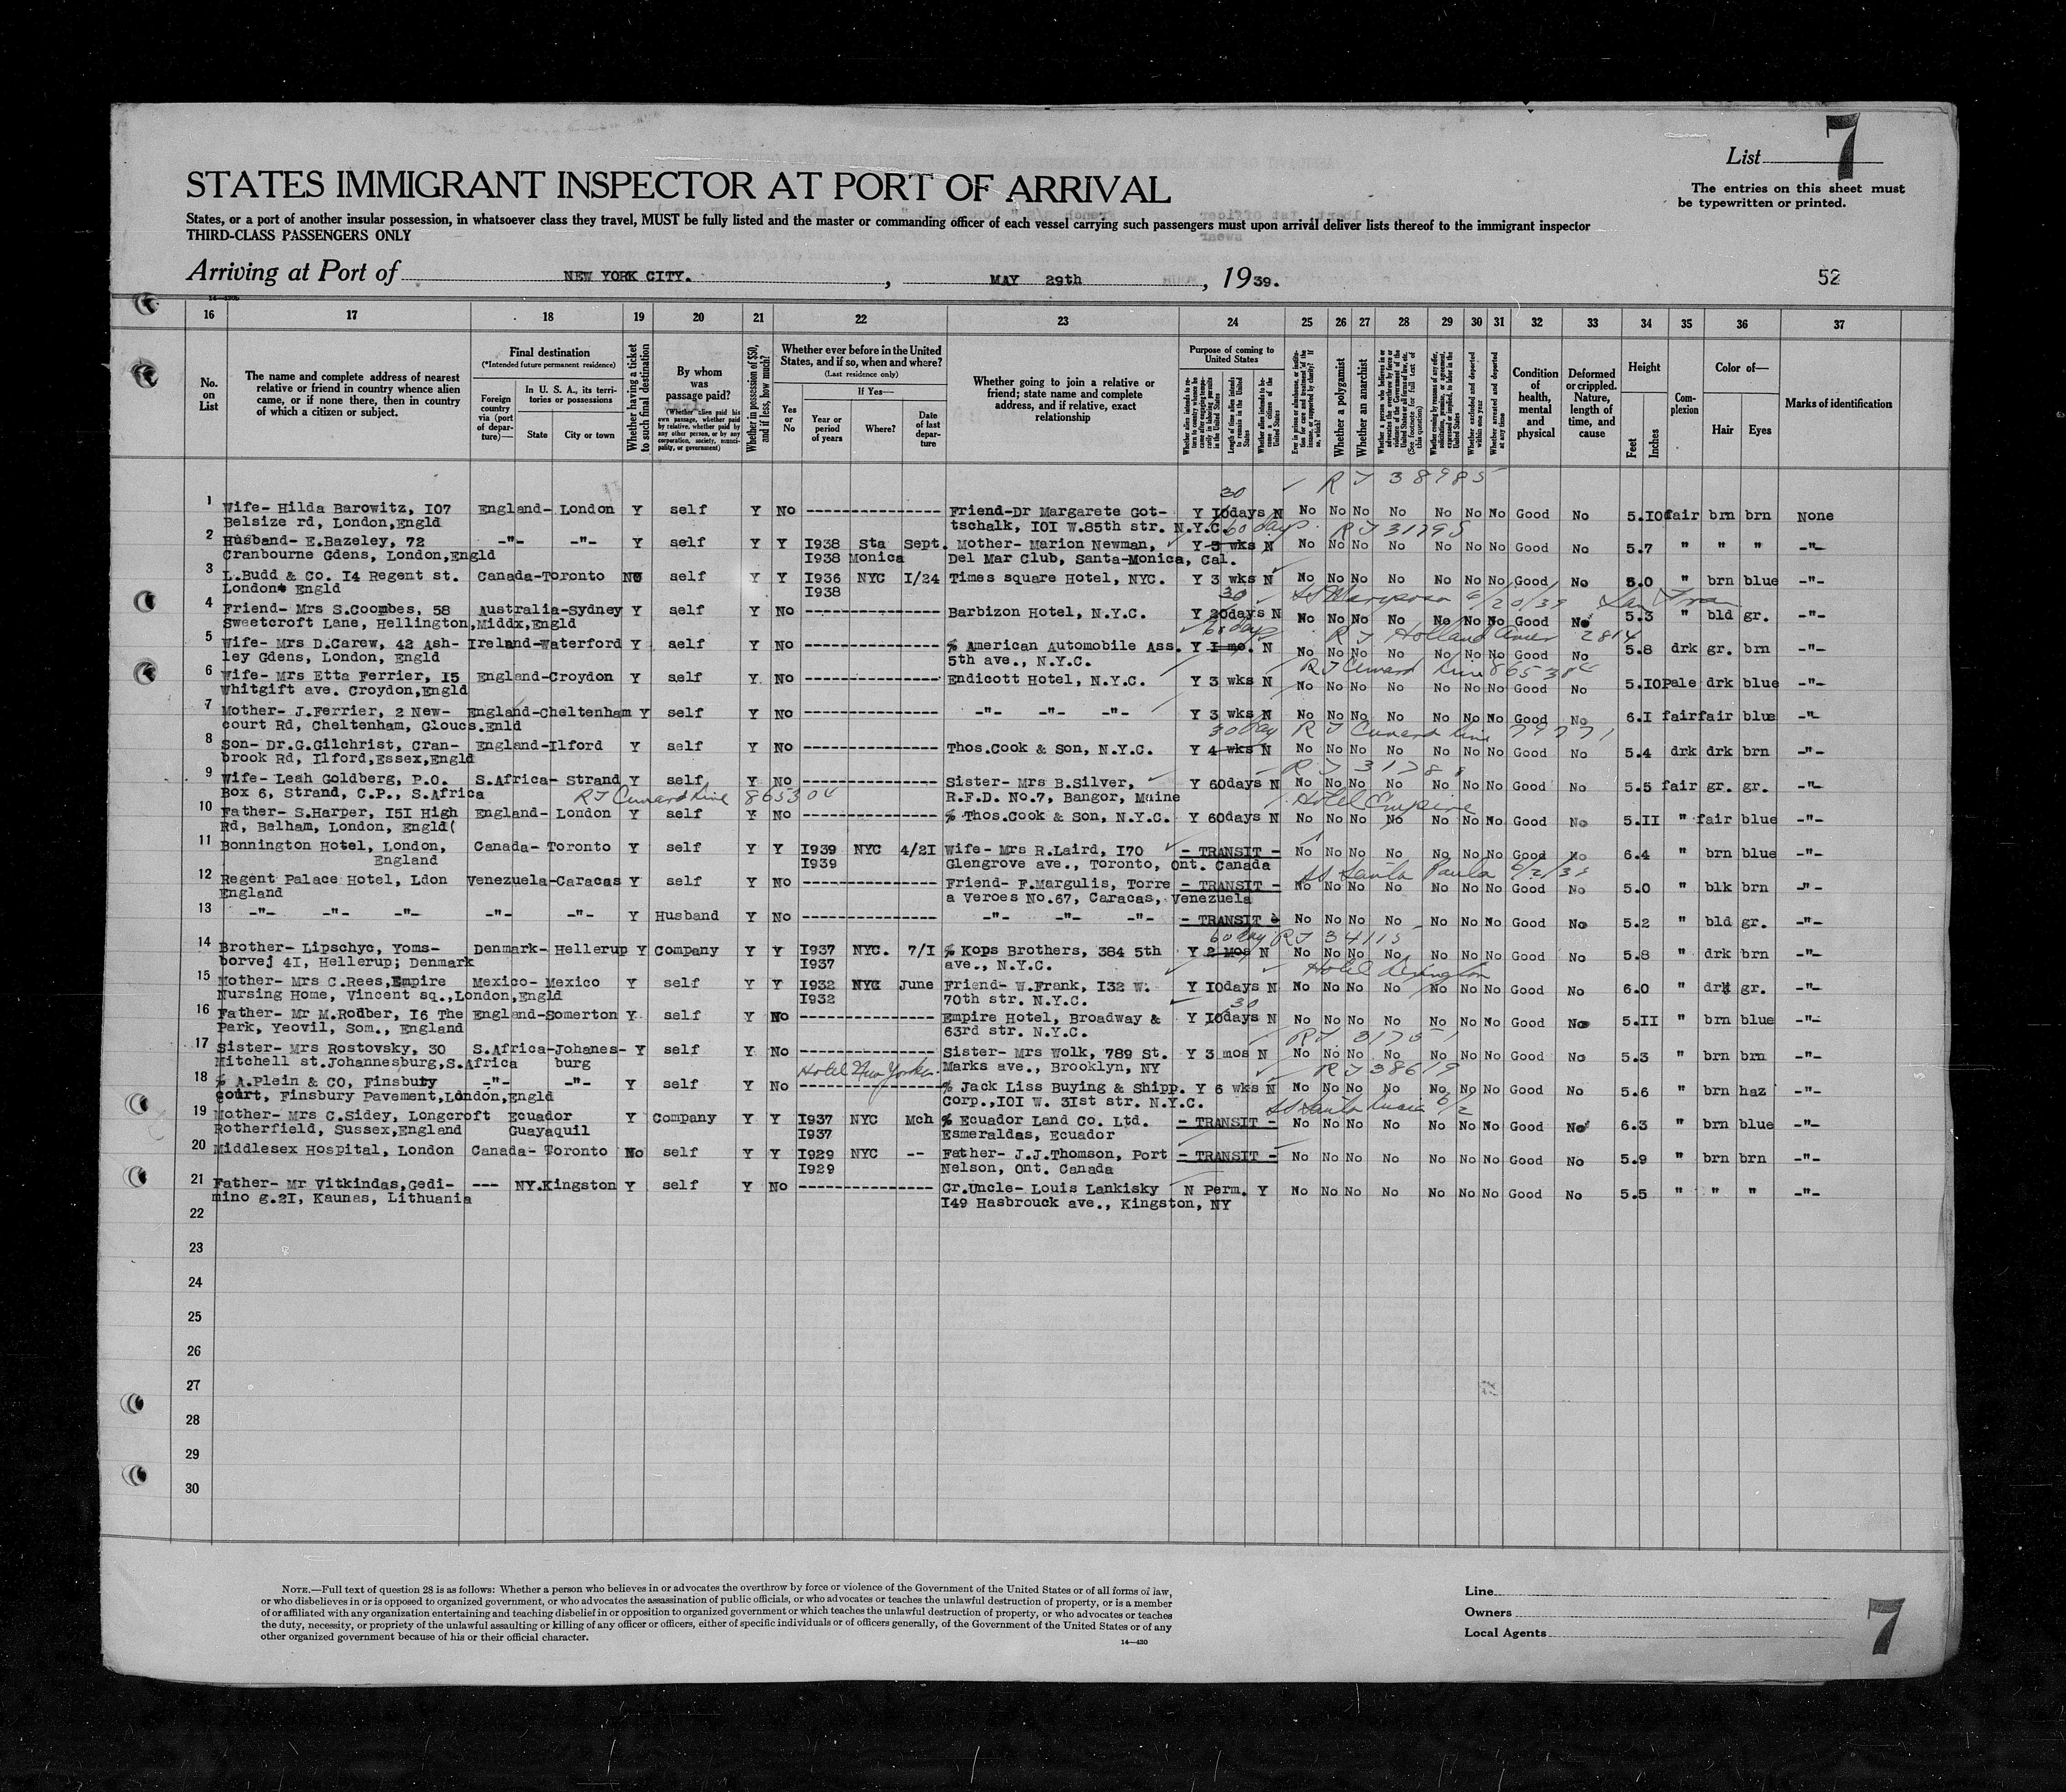 7
List
STATES IMMIGRANT INSPECTOR AT PORT OF ARRIVAL
The entries on this sheet must
be typewritten or printed.
States, or a port of another insular possession, in whatsoever class they travel, MUST be fully listed and the master or commanding officer of each vessel carrying such passengers must upon arrival deliver lists thereof to the immigrant inspector
THIRD-CLASS PASSENGERS ONLY
Arriving at Port of NEW YORK CITY. , MAY 29th , 1939.
52
16 17 18 19 20 21 22 23 24 25 26 27 28 29 30 31 32 33 34 35 36 37
No. on List
The name and complete address of nearest relative or friend in country whence alien came, or if none there, then in country of which a citizen or subject.
Final destination
(*Intended future permanent residence)
Foreign country via (port of departure)—
In U. S. A., its territories or possessions
State
City or town
Whether having a ticket to such final destination
By whom was passage paid?
(Whether alien paid his own passage, whether paid by relative, whether paid by any other person, or by any corporation, society, municipality, or government)
Whether in possession of $50, and if less, how much?
Whether ever before in the United States, and if so, when and where?
(Last residence only)
Yes or No
If Yes—
Year or period of years
Where?
Date of last departure
Whether going to join a relative or friend; state name and complete address, and if relative, exact relationship
Purpose of coming to United States
Length of time alien intends to remain in the United States
Whether alien intends to become a citizen of the United States
Whether a polygamist
Whether an anarchist
Condition of health, mental and physical
Deformed or crippled. Nature, length of time, and cause
Height
Feet
Inches
Complexion
Color of—
Hair
Eyes
Marks of identification
R T 38985
30
1 Wife- Hilda Barowitz, I07 England- London Y self Y No --------------- Friend-Dr Margarete Got- Y I0days N No No No No No No No Good No 5.I0 fair brn brn None
Belsize rd, London,Engld tschalk, I0I W.85th str. N.Y.C.
60 days R T 31795
2 Husband- E.Bazeley, 72 -"- -"- Y self Y Y I938 Sta Sept. Mother- Marion Newman, Y 3 wks N No No No No No No No Good No 5.7 " " " -"-
Cranbourne Gdens, London,Engld I938 Monica Del Mar Club, Santa-Monica, Cal.
3 L.Budd & Co. I4 Regent st. Canada-Toronto NO self Y Y I936 NYC I/24 Times square Hotel, NYC. Y 3 wks N No No No No No No No Good No 5.0 " brn blue -"-
London Engld I938
30 SS Mariposa 6/20/39 San Fran
4 Friend- Mrs S.Coombes, 58 Australia-Sydney Y self Y No --------------- Barbizon Hotel, N.Y.C. Y 20days N No No No No No No No Good No 5.3 " bld gr. -"-
Sweetcroft Lane, Hellington,Middx,Engld
60 days R T Holland Amer 2814
5 Wife- Mrs D.Carew, 42 Ash- Ireland-Waterford Y self Y No --------------- % American Automobile Ass. Y I mo. N No No No No No No No Good No 5.8 drk gr. brn -"-
ley Gdens, London, Engld 5th ave., N.Y.C.
R T Cunard Line 865304
6 Wife- Mrs Etta Ferrier, I5 England-Croydon Y self Y No --------------- Endicott Hotel, N.Y.C. Y 3 wks N No No No No No No No Good No 5.I0 Pale drk blue -"-
Whitgift ave. Croydon,Engld
7 Mother- J.Ferrier, 2 New- England-Cheltenham Y self Y No --------------- -"- -"- -"- Y 3 wks N No No No No No No No Good No 6.I fair fair blue -"-
court Rd, Cheltenham, Gloucs.Enld
30 day R T Cunard Line 79771
8 Son- Dr.G.Gilchrist, Cran- England-Ilford Y self Y No --------------- Thos.Cook & Son, N.Y.C. Y 4 wks N No No No No No No No Good No 5.4 drk drk brn -"-
brook Rd, Ilford,Essex,Engld
R T 3178
9 Wife- Leah Goldberg, P.O. S.Africa- Strand Y self Y No --------------- Sister- Mrs B.Silver, Y 60days N No No No No No No No Good No 5.5 fair gr. gr. -"-
Box 6, Strand, C.P., S.Africa R.F.D. No.7, Bangor, Maine
R T Cunard Line 865304 Hotel Empire
10 Father- S.Harper, I5I High England- London Y self Y No --------------- % Thos.Cook & Son, N.Y.C. Y 60days N No No No No No No No Good No 5.II " fair blue -"-
Rd, Balham, London, Engld(
11 Bonnington Hotel, London, Canada- Toronto Y self Y Y I939 NYC 4/2I Wife- Mrs R.Laird, I70 - TRANSIT - No No No No No No No Good No 6.4 " brn blue -"-
England I939 Glengrove ave., Toronto, Ont. Canada
SS Santa Paula 6/2/39
12 Regent Palace Hotel, Ldon Venezuela-Caracas Y self Y No --------------- Friend- F.Margulis, Torre - TRANSIT - No No No No No No No Good No 5.0 " blk brn -"-
England a Veroes No.67, Caracas, Venezuela
13 -"- -"- -"- -"- -"- Y Husband Y No --------------- -"- -"- -"- - TRANSIT - No No No No No No No Good No 5.2 " bld gr. -"-
60 day R T 34115
14 Brother- Lipschyc, Yoms- Denmark- Hellerup Y Company Y Y I937 NYC. 7/I % Kops Brothers, 384 5th Y 2 Mos N No No No No No No No Good No 5.8 " drk brn -"-
borvej 4I, Hellerup; Denmark I937 ave., N.Y.C.
Hotel Lexington
15 Mother- Mrs C.Rees,Empire Mexico- Mexico Y self Y Y I932 NYC June Friend- W.Frank, I32 W. Y I0days N No No No No No No No Good No 6.0 " drk gr. -"-
Nursing Home, Vincent sq.,London,Engld I932 70th str. N.Y.C.
30
16 Father- Mr M.Rodber, I6 The England-Somerton Y self Y No --------------- Empire Hotel, Broadway & Y I0days N No No No No No No No Good No 5.II " brn blue -"-
Park, Yeovil, Som., England 63rd str. N.Y.C.
17 Sister- Mrs Rostovsky, 30 S.Africa-Johanes- Y self Y No --------------- Sister- Mrs Wolk, 789 St. Y 3 mos N No No No No No No No Good No 5.3 " brn brn -"-
Mitchell st.Johannesburg,S.Africa burg Marks ave., Brooklyn, NY
Hotel New Yorker R T 38619
18 % A.Plein & CO, Finsbury -"- -"- Y self Y No --------------- % Jack Liss Buying & Shipp. Y 6 wks N No No No No No No No Good No 5.6 " brn haz -"-
court, Finsbury Pavement,London,Engld Corp.,I0I W. 3Ist str. N.Y.C.
SS Santa Lucia 6/2
19 Mother- Mrs C.Sidey, Longcroft Ecuador Y Company Y Y I937 NYC Mch % Ecuador Land Co. Ltd. - TRANSIT - No No No No No No No Good No 6.3 " brn blue -"-
Rotherfield, Sussex,England Guayaquil I937 Esmeraldas, Ecuador
20 Middlesex Hospital, London Canada- Toronto No self Y Y I929 NYC -- Father- J.J.Thomson, Port - TRANSIT - No No No No No No No Good No 5.9 " brn brn -"-
I929 Nelson, Ont. Canada
21 Father- Mr Vitkindas,Gedi- --- NY.Kingston Y self Y No --------------- Gr.Uncle- Louis Lankisky N Perm. Y No No No No No No No Good No 5.5 " " " -"-
mino g.2I, Kaunas, Lithuania I49 Hasbrouck ave., Kingston, NY
22
23
24
25
26
27
28
29
30
NOTE.—Full text of question 28 is as follows: Whether a person who believes in or advocates the overthrow by force or violence of the Government of the United States or of all forms of law,
or who disbelieves in or is opposed to organized government, or who advocates the assassination of public officials, or who advocates or teaches the unlawful destruction of property, or is a member
of or affiliated with any organization entertaining and teaching disbelief in or opposition to organized government or which teaches the unlawful destruction of property, or who advocates or teaches
the duty, necessity, or propriety of the unlawful assaulting or killing of any officer or officers, either of specific individuals or of officers generally, of the Government of the United States or of any
other organized government because of his or their official character.
14—430
Line
Owners
Local Agents
7